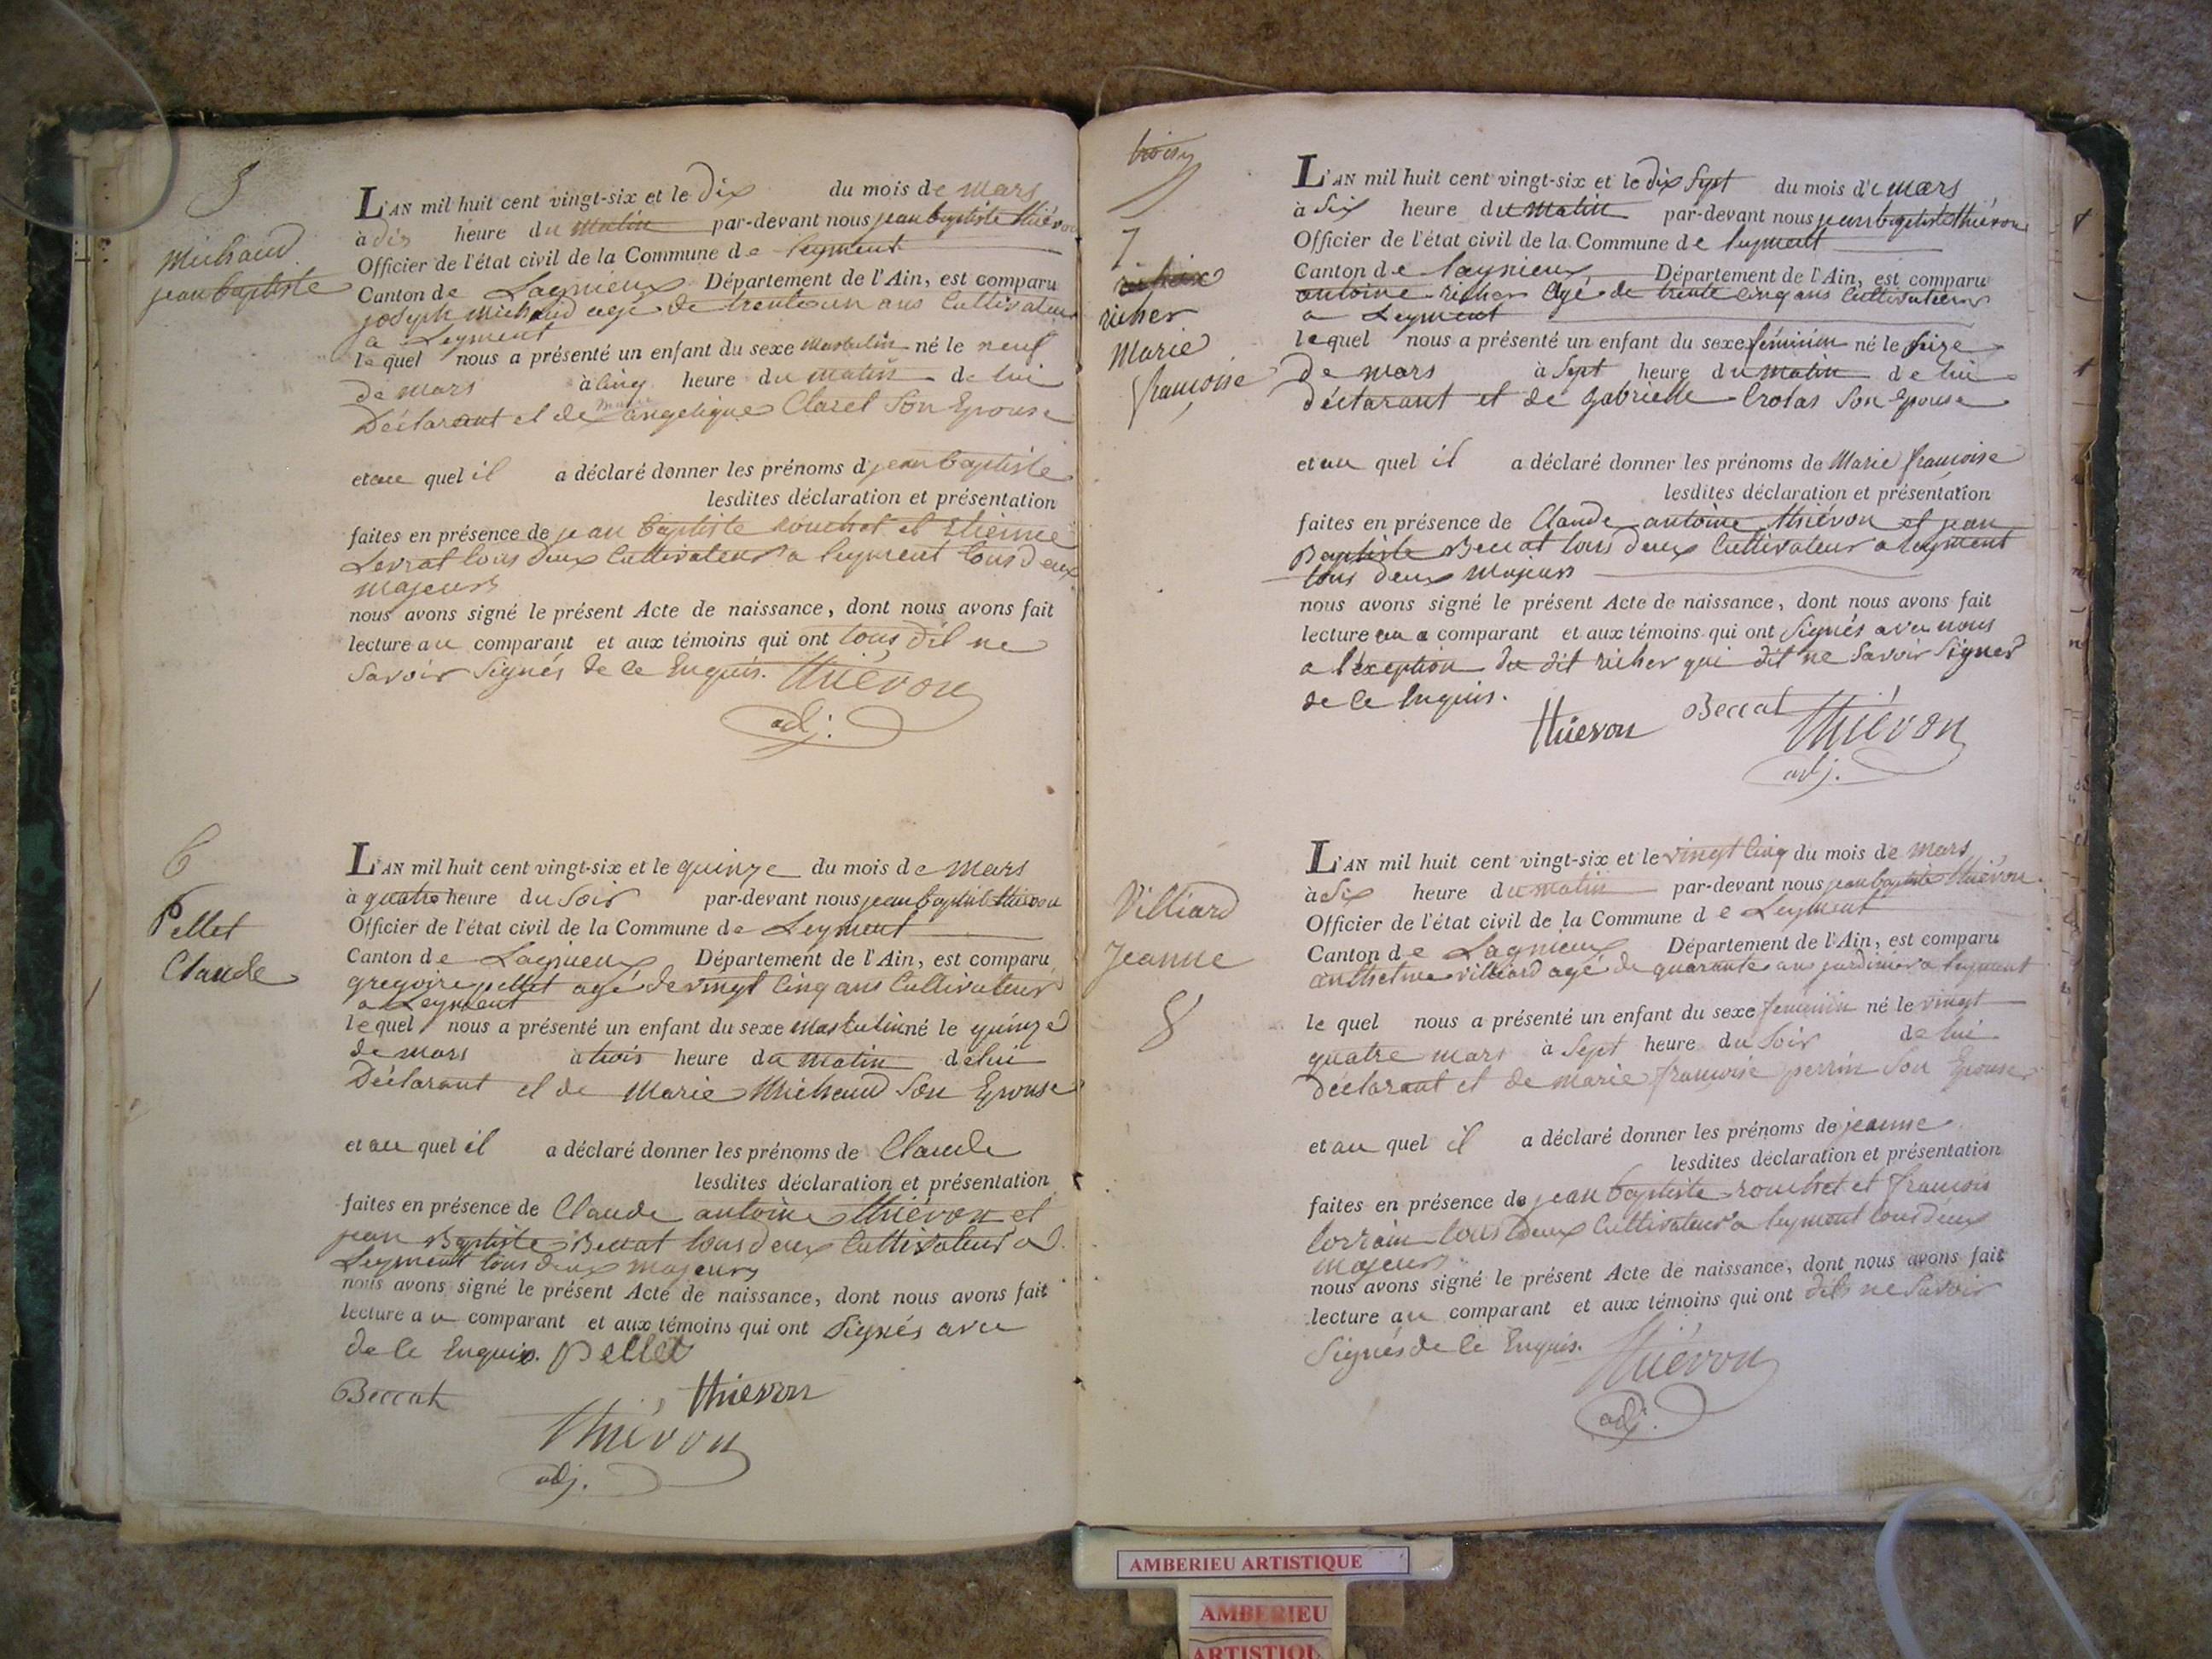 5
Michaud
jean baptiste
L'AN mil huit cent vingt-six et le dix du mois de mars
à dix heure du matin par-devant nous jean baptiste thiévon
Officier de l'état civil de la Commune de leyment
Canton de Lagnieux Département de l'Ain, est comparu
joseph michaud agé de trente un ans Cultivateur
a Leyment
lequel nous a présenté un enfant du sexe masculin né le neuf
de mars à cinq heure du matin de lui
Déclarant et de marie angelique Claret Son Epouse
et au quel il a déclaré donner les prénoms d jean baptiste
lesdites déclaration et présentation
faites en présence de jean baptiste rouchet et Etienne
Levrat tous deux Cultivateur a leyment tous deux
majeurs
nous avons signé le présent Acte de naissance, dont nous avons fait
lecture au comparant et aux témoins qui ont tous dit ne
Savoir Signés de ce Enquis. Thiévon
adj.
6
Pellet
Claude
L'AN mil huit cent vingt-six et le quinze du mois de mars
à quatre heure du Soir par-devant nous jean baptiste thiévon
Officier de l'état civil de la Commune de Leyment
Canton de Lagnieux Département de l'Ain, est comparu
gregoire pellet agé de vingt Cinq ans Cultivateur
a Leyment
lequel nous a présenté un enfant du sexe masculin né le quinze
de mars à trois heure du matin de lui
Déclarant et de Marie Michaud Son Epouse
et au quel il a déclaré donner les prénoms de Claude
lesdites déclaration et présentation
faites en présence de Claude antoine thiévon et
jean Baptiste Beccat tous deux Cultivateur a
Leyment tous deux majeurs
nous avons signé le présent Acte de naissance, dont nous avons fait
lecture au comparant et aux témoins qui ont Signés avec
de ce Enquis. pellet
Beccat thievon
Thiévon
adj.
7
richer
Marie
françoise
L'AN mil huit cent vingt-six et le dix Sept du mois de mars
à Six heure du matin par-devant nous jean baptiste thiévon
Officier de l'état civil de la Commune de leyment
Canton de lagnieux Département de l'Ain, est comparu
antoine richer agé de trente cinq ans Cultivateur
a Leyment
lequel nous a présenté un enfant du sexe féminin né le Seize
de mars à Sept heure du matin de lui
déclarant et de gabrielle Crolas Son Epouse
et au quel il a déclaré donner les prénoms de Marie françoise
lesdites déclaration et présentation
faites en présence de Claude antoine thiévon et jean
Baptiste Beccat tous deux Cultivateur a leyment
tous deux majeurs
nous avons signé le présent Acte de naissance, dont nous avons fait
lecture au comparant et aux témoins qui ont Signés avec nous
a l'exeption du dit richer qui dit ne Savoir Signer
de ce Enquis.
thievon Beccat Thiévon
adj.
Villiard
Jeanne
8
L'AN mil huit cent vingt-six et le vingt Cinq du mois de mars
à Six heure du matin par-devant nous jean baptiste thiévon
Officier de l'état civil de la Commune de Leyment
Canton de Lagnieux Département de l'Ain, est comparu
anthelme Villiard agé de quarante an jardinier a leyment
le quel nous a présenté un enfant du sexe feminin né le vingt
quatre mars à Sept heure du Soir de lui
déclarant et de marie françoise perrin Son Epouse
et au quel il a déclaré donner les prénoms de jeanne
lesdites déclaration et présentation
faites en présence de jean baptiste rouchet et françois
lorrain tous deux Cultivateur a leyment tous deux
majeurs
nous avons signé le présent Acte de naissance, dont nous avons fait
lecture au comparant et aux témoins qui ont dits ne Savoir
Signés de ce Enquis. Thiévon
adj.
AMBERIEU ARTISTIQUE
AMBERIEU
ARTISTIQU